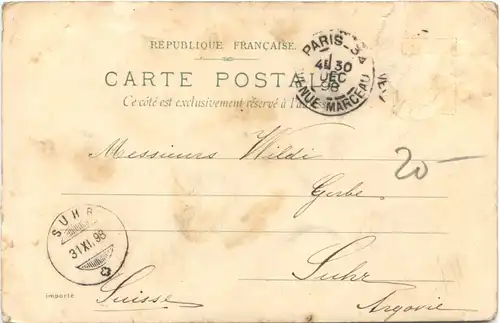 RÉPUBLIQUE FRANÇAISE.
CARTE POSTALE
Ce côté est exclusivement réservé à l'a
PARIS-34
4E 30
DEC
98
AVENUE MARCEAU
Messieurs Wildi
20-
Gerbe
SUHR
31 XI. 98
8
Suhr
Importé
Suisse
Argovie